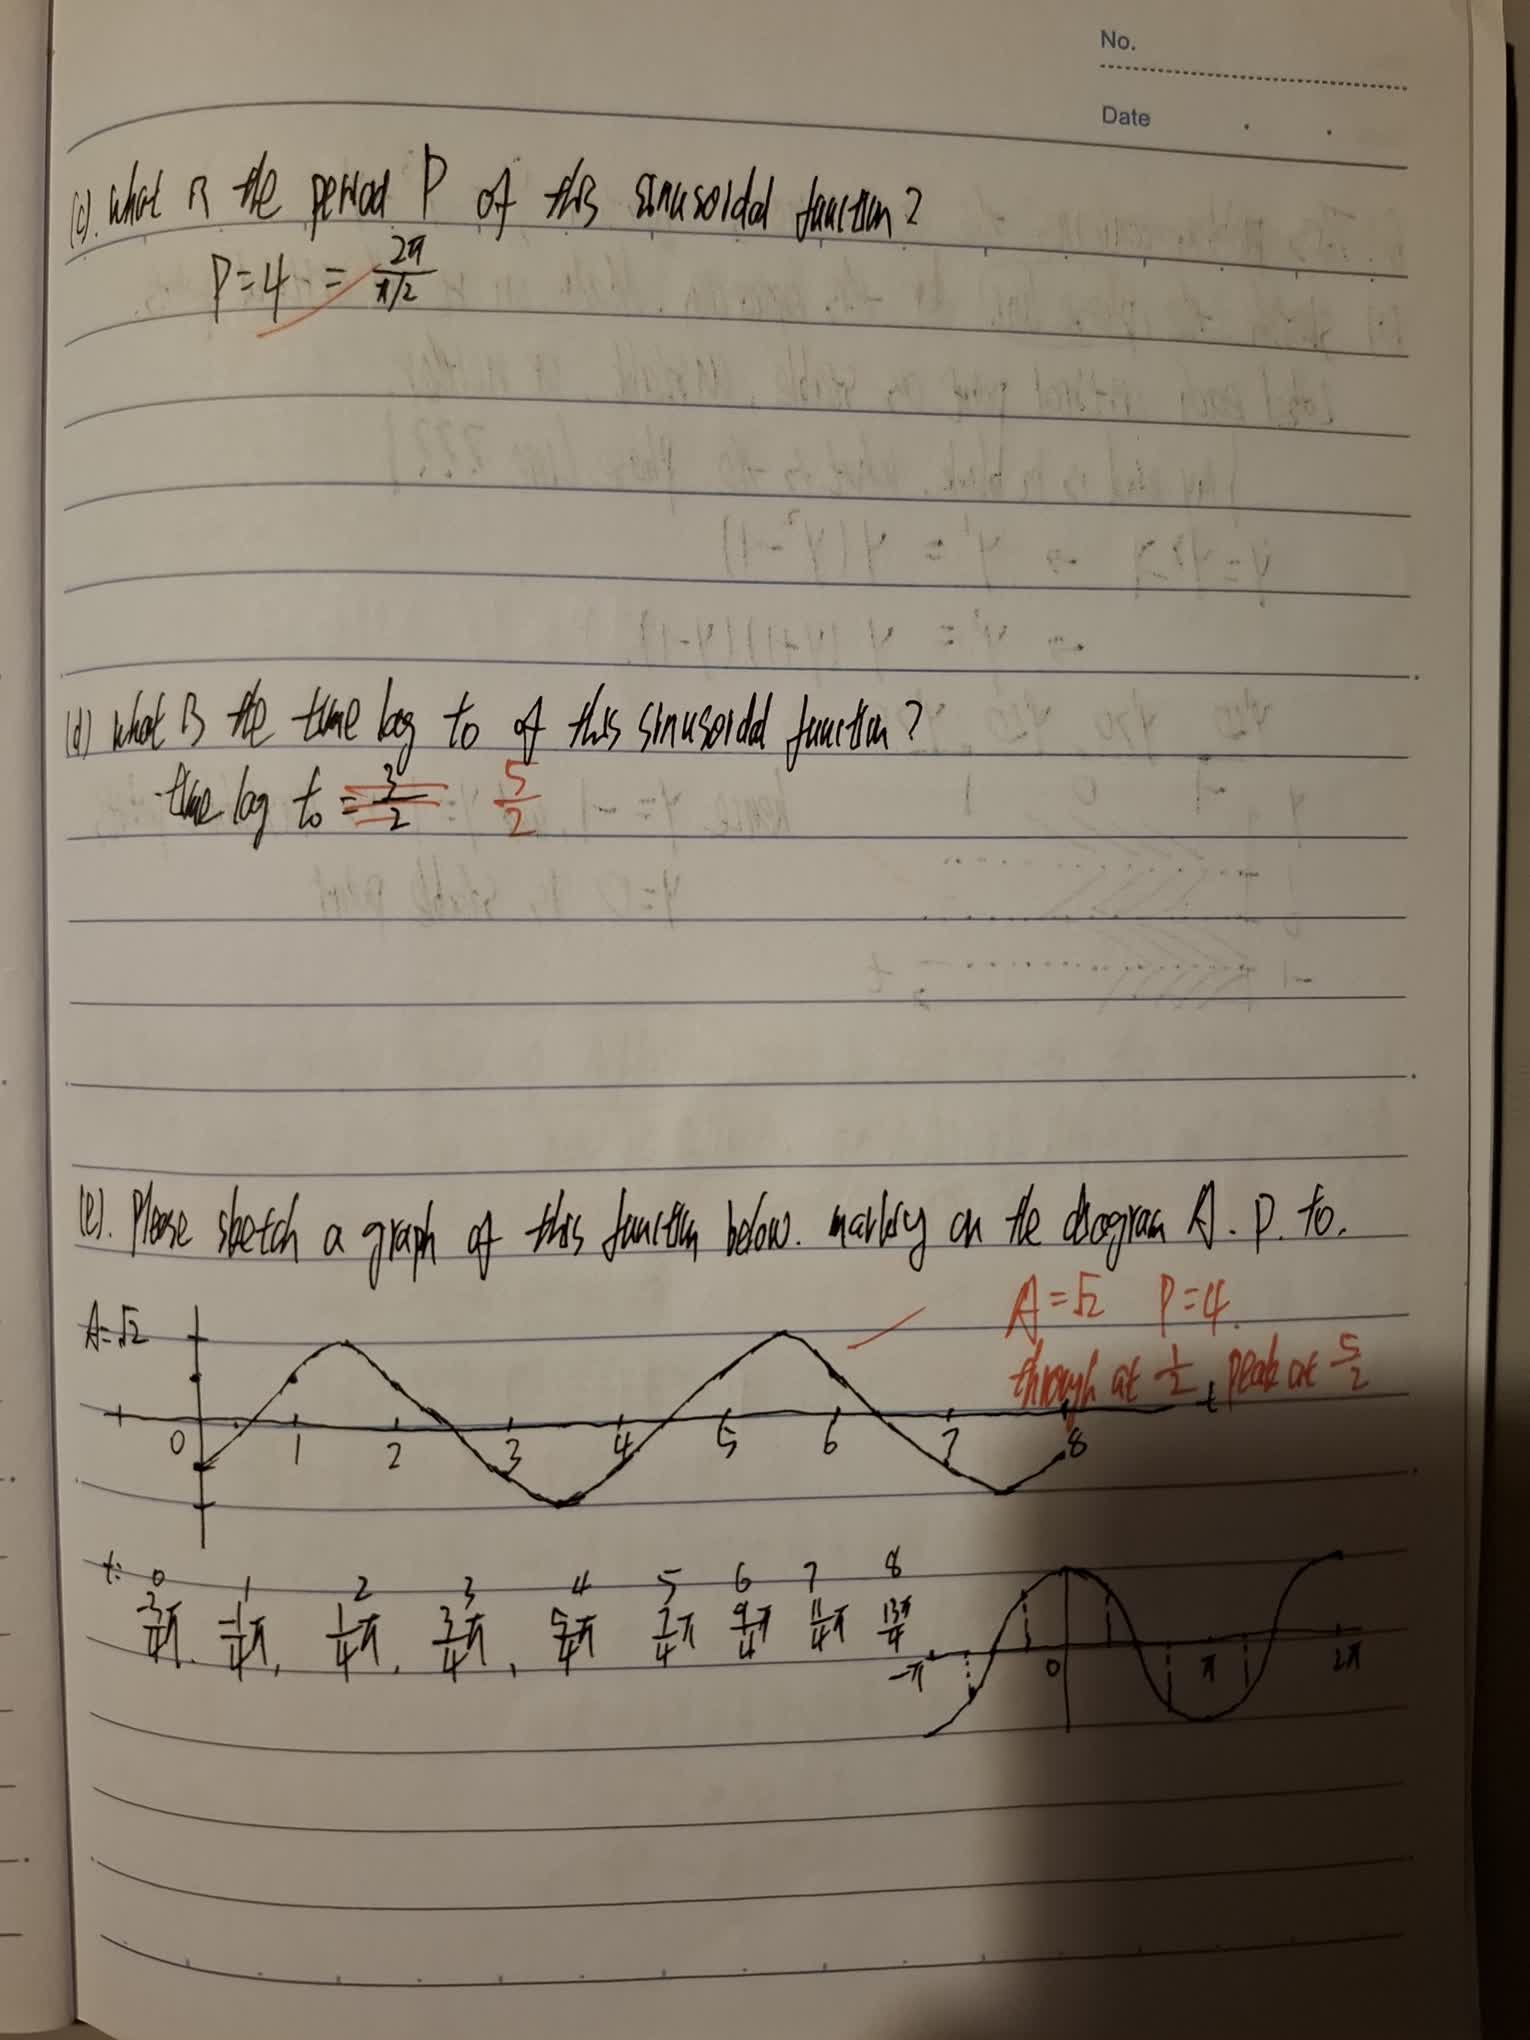 No.
Date
(c). What is the period P of this sinusoidal function?
P=4 = 2π/(π/2)
(d) What is the time lag to of this sinusoidal function?
time lag to = 3/2 5/2
(e). Please sketch a graph of this function below. marking on the diagram A. P. to.
A=√2
A=√2 P=4.
through at 1/2, peak at 5/2
t
0 1 2 3 4 5 6 7 8
t: 0 1 2 3 4 5 6 7 8
-3/4π. -1/4π, 1/4π, 3/4π, 5/4π 7/4π 9/4π 11/4π 13π/4
-π 0 π 2π